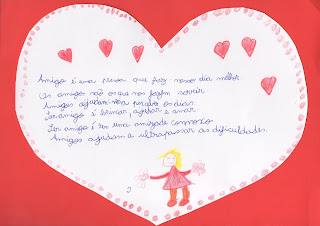 Amigo é uma pessoa que faz nosso dia melhor
Os amigos são os que nos fazem sorrir
Amigos ajudam-nos todos os dias.
Ser amigo é brincar, ajudar e amar
Ser amigo é ter uma amizade connosco
Amigos ajudam a ultrapassar as dificuldades.